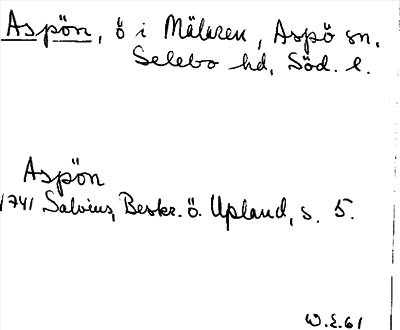 Aspön, ö i Mälaren, Aspö sn,
Selebo hd, Söd. l.
Aspön
1741 Salvius, Beskr. ö. Upland, s. 5.
W.E.61